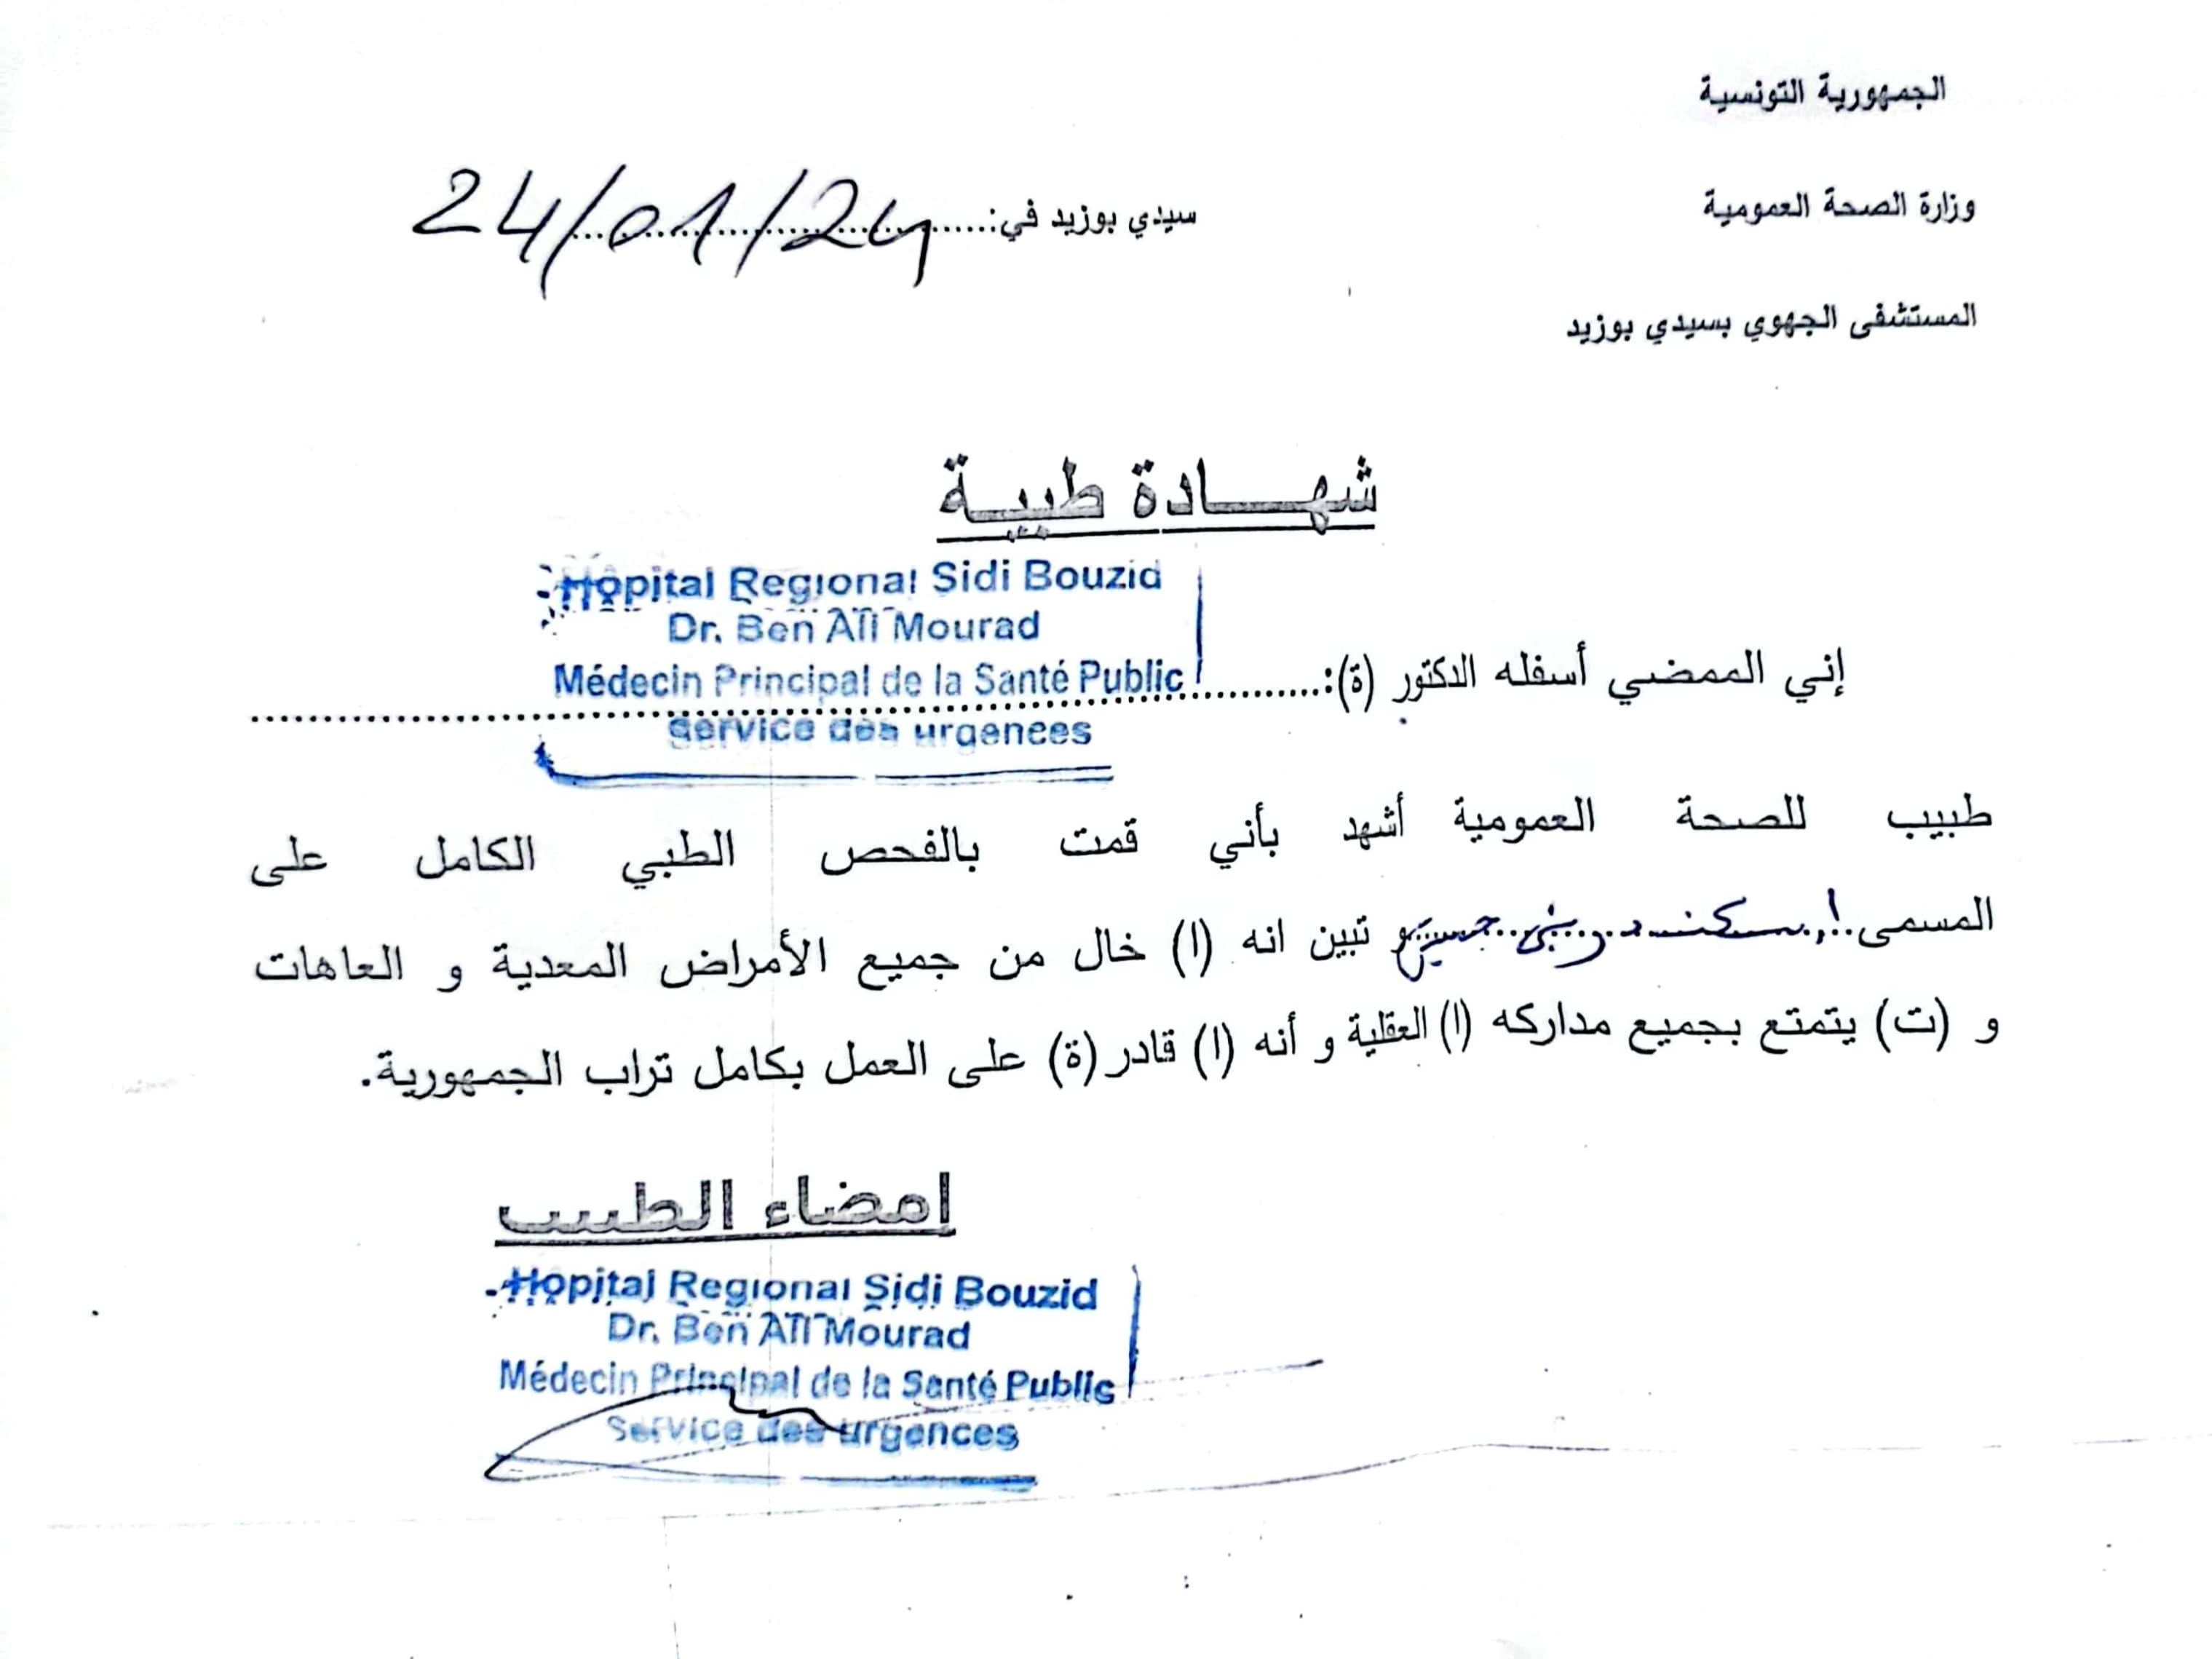 الجمهورية التونسية
وزارة الصحة العمومية
سيدي بوزيد في: 24/01/24
المستشفى الجهوي بسيدي بوزيد
شهـــادة طبيـة
Hôpital Regional Sidi Bouzid
Dr. Ben Ali Mourad
Médecin Principal de la Santé Public
Service des urgences
إني الممضي أسفله الدكتور (ة):
طبيب للصحة العمومية أشهد بأني قمت بالفحص الطبي الكامل على
المسمى إسكندر بني حسين و تبين انه (ا) خال من جميع الأمراض المعدية و العاهات
و (ت) يتمتع بجميع مداركه (ا) العقلية و أنه (ا) قادر (ة) على العمل بكامل تراب الجمهورية.
إمضاء الطبيب
Hôpital Regional Sidi Bouzid
Dr. Ben Ali Mourad
Médecin Principal de la Santé Public
Service des urgences